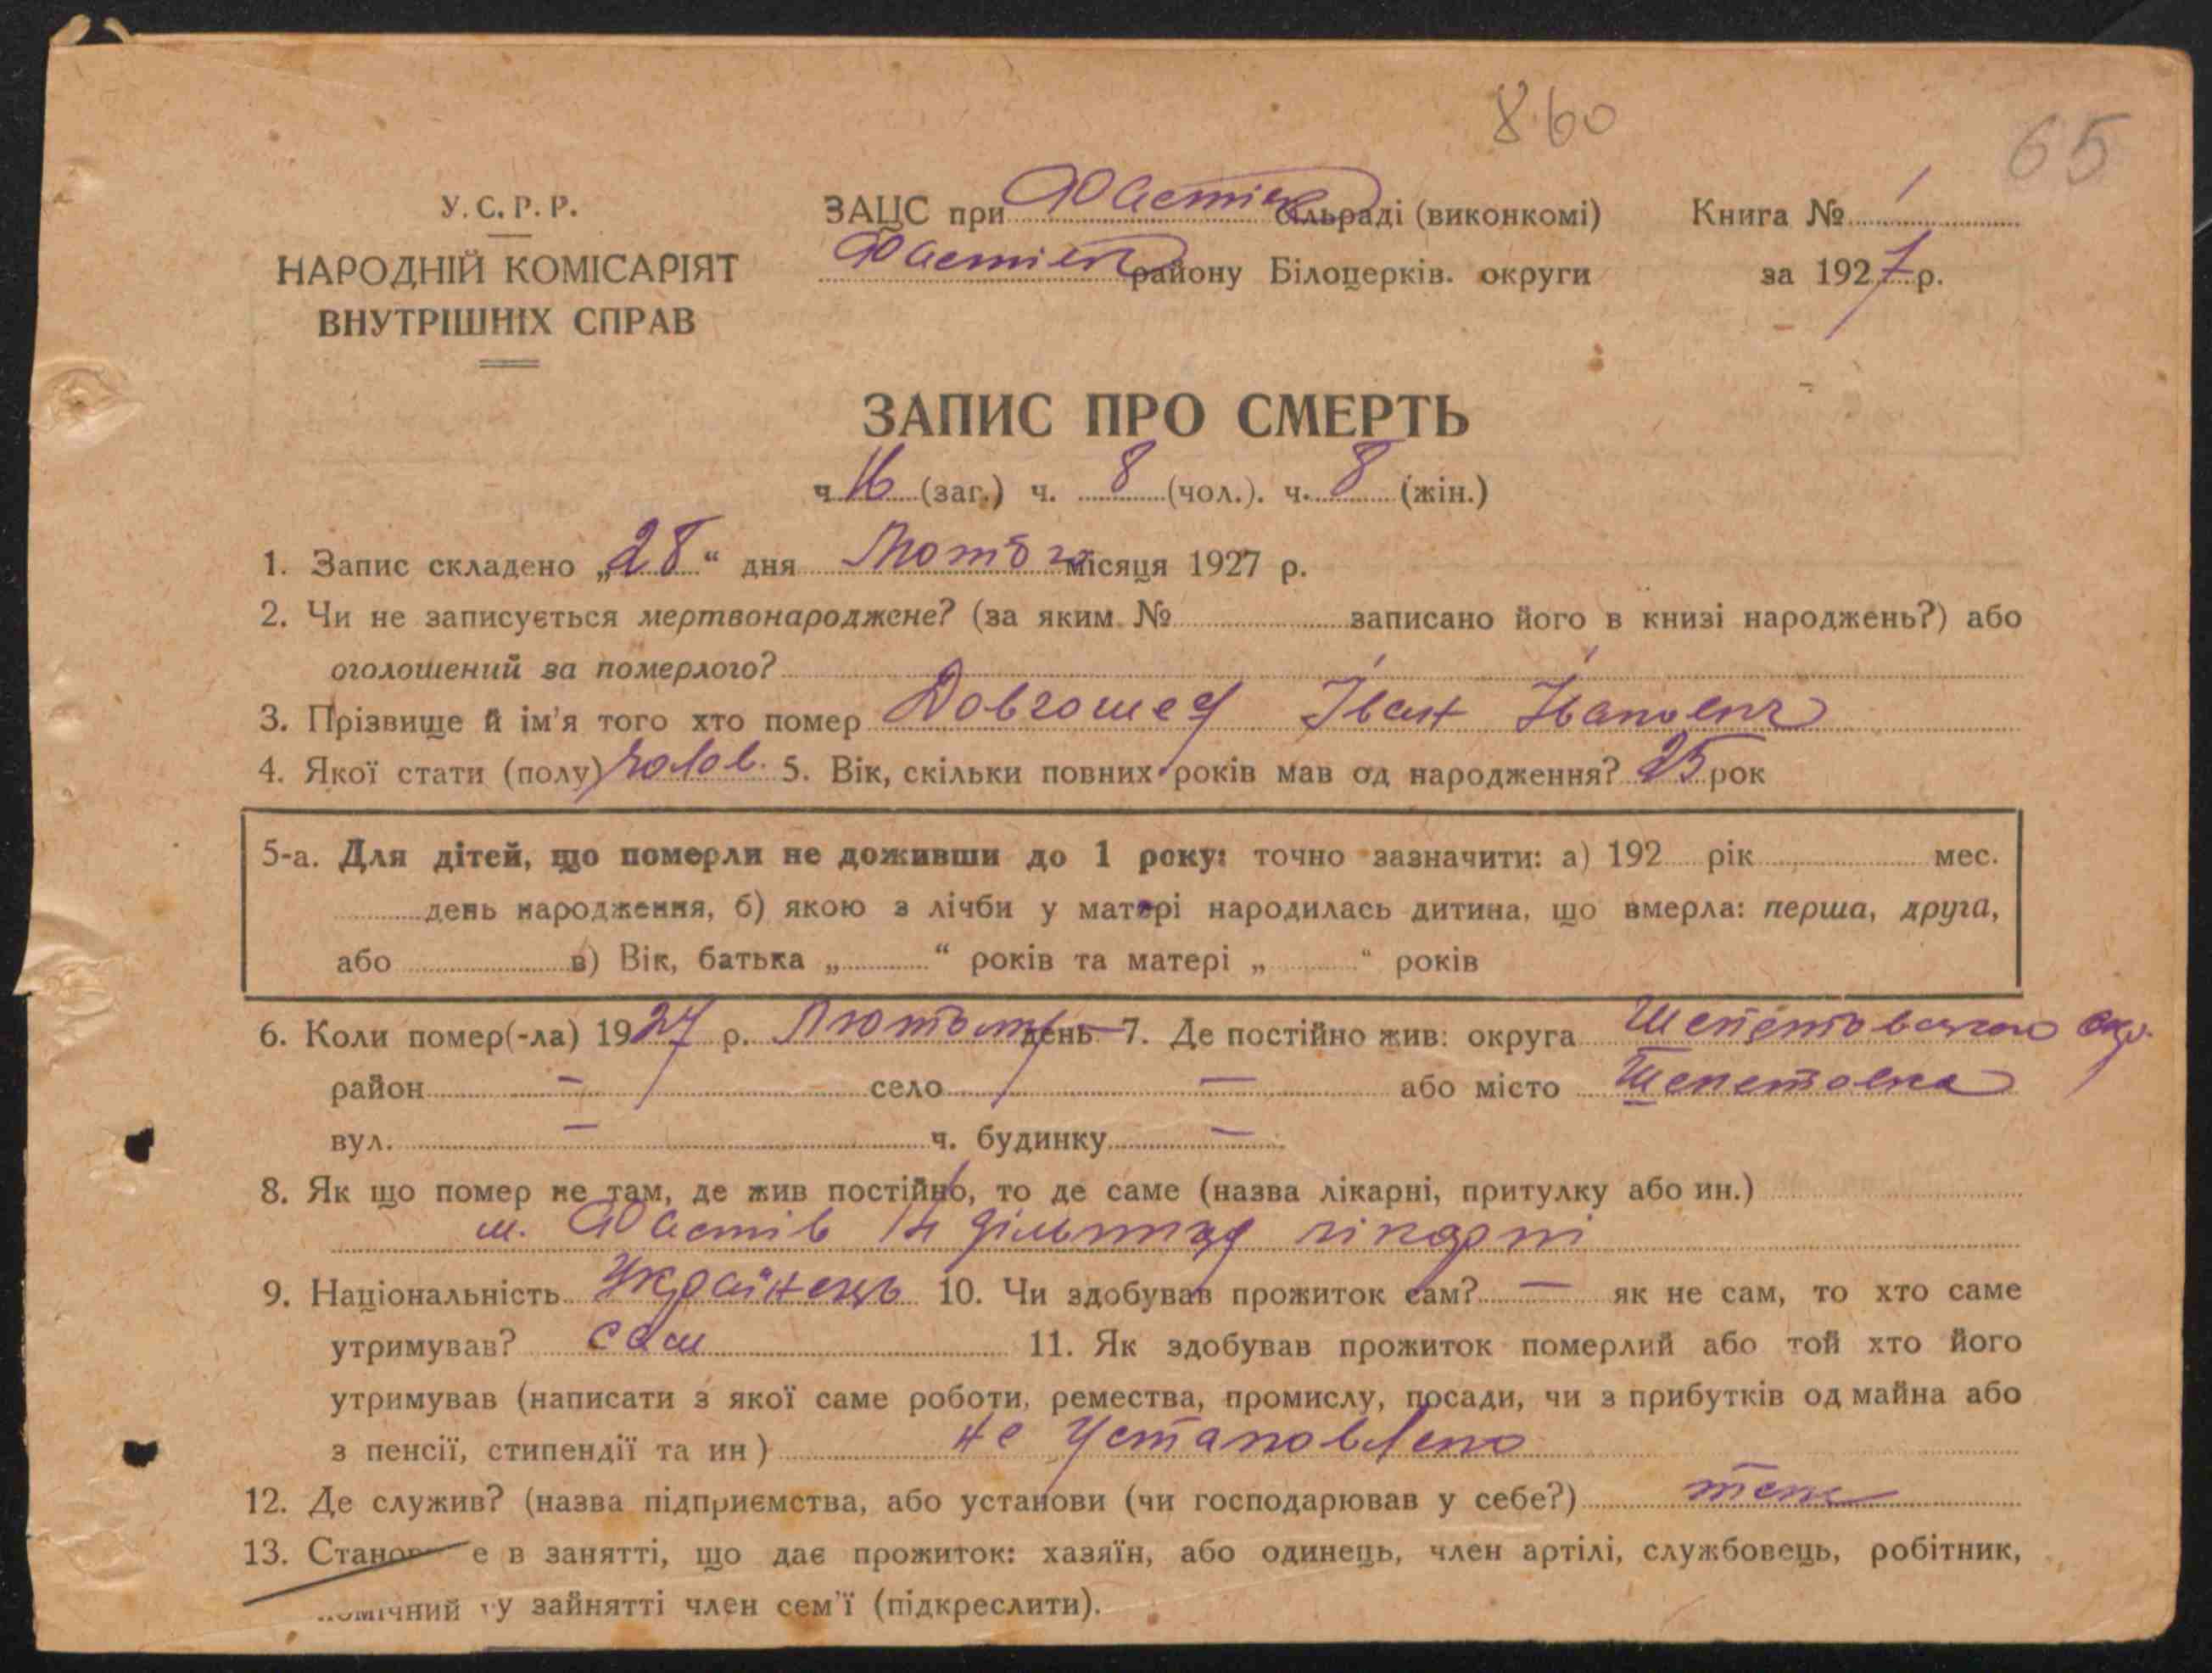 860
65
У. С. Р. Р.
НАРОДНІЙ КОМІСАРІЯТ
ВНУТРІШНІХ СПРАВ
ЗАЦС при Фастівск сільраді (виконкомі)
Фастівск району Білоцерків. округи
Книга № 1
за 1927 р.
ЗАПИС ПРО СМЕРТЬ
ч 16 (заг.) ч. 8 (чол.). ч. 8 (жін.)
1. Запис складено „28“ дня Лютого місяця 1927 р.
2. Чи не записується мертвонароджене? (за яким № записано його в книзі народжень?) або
оголошений за померлого?
3. Прізвище й ім'я того хто помер Довгошея Іван Іванович
4. Якої стати (полу) чолов. 5. Вік, скільки повних років мав од народження? 25 рок
5-а. Для дітей, що померли не доживши до 1 року: точно зазначити: а) 192 рік мес.
день народження, б) якою з лічби у матері народилась дитина, що вмерла: перша, друга,
або в) Вік, батька „ “ років та матері „ “ років
6. Коли помер(-ла) 1927 р. день — 7. Де постійно жив: округа Шепетовського окр.
район — село — або місто Шепетовка
вул. — ч. будинку —
8. Як що помер не там, де жив постійно, то де саме (назва лікарні, притулку або ин.)
м. Фастів 14 лікарні
9. Національність Українець 10. Чи здобував прожиток сам? — як не сам, то хто саме
утримував? сам 11. Як здобував прожиток померлий або той хто його
утримував (написати з якої саме роботи, ремества, промислу, посади, чи з прибутків од майна або
з пенсії, стипендії та ин) не установлено
12. Де служив? (назва підприємства, або установи (чи господарював у себе?) теж
13. Станов е в занятті, що дає прожиток: хазяїн, або одинець, член артілі, службовець, робітник,
помічний у зайнятті член сем'ї (підкреслити).